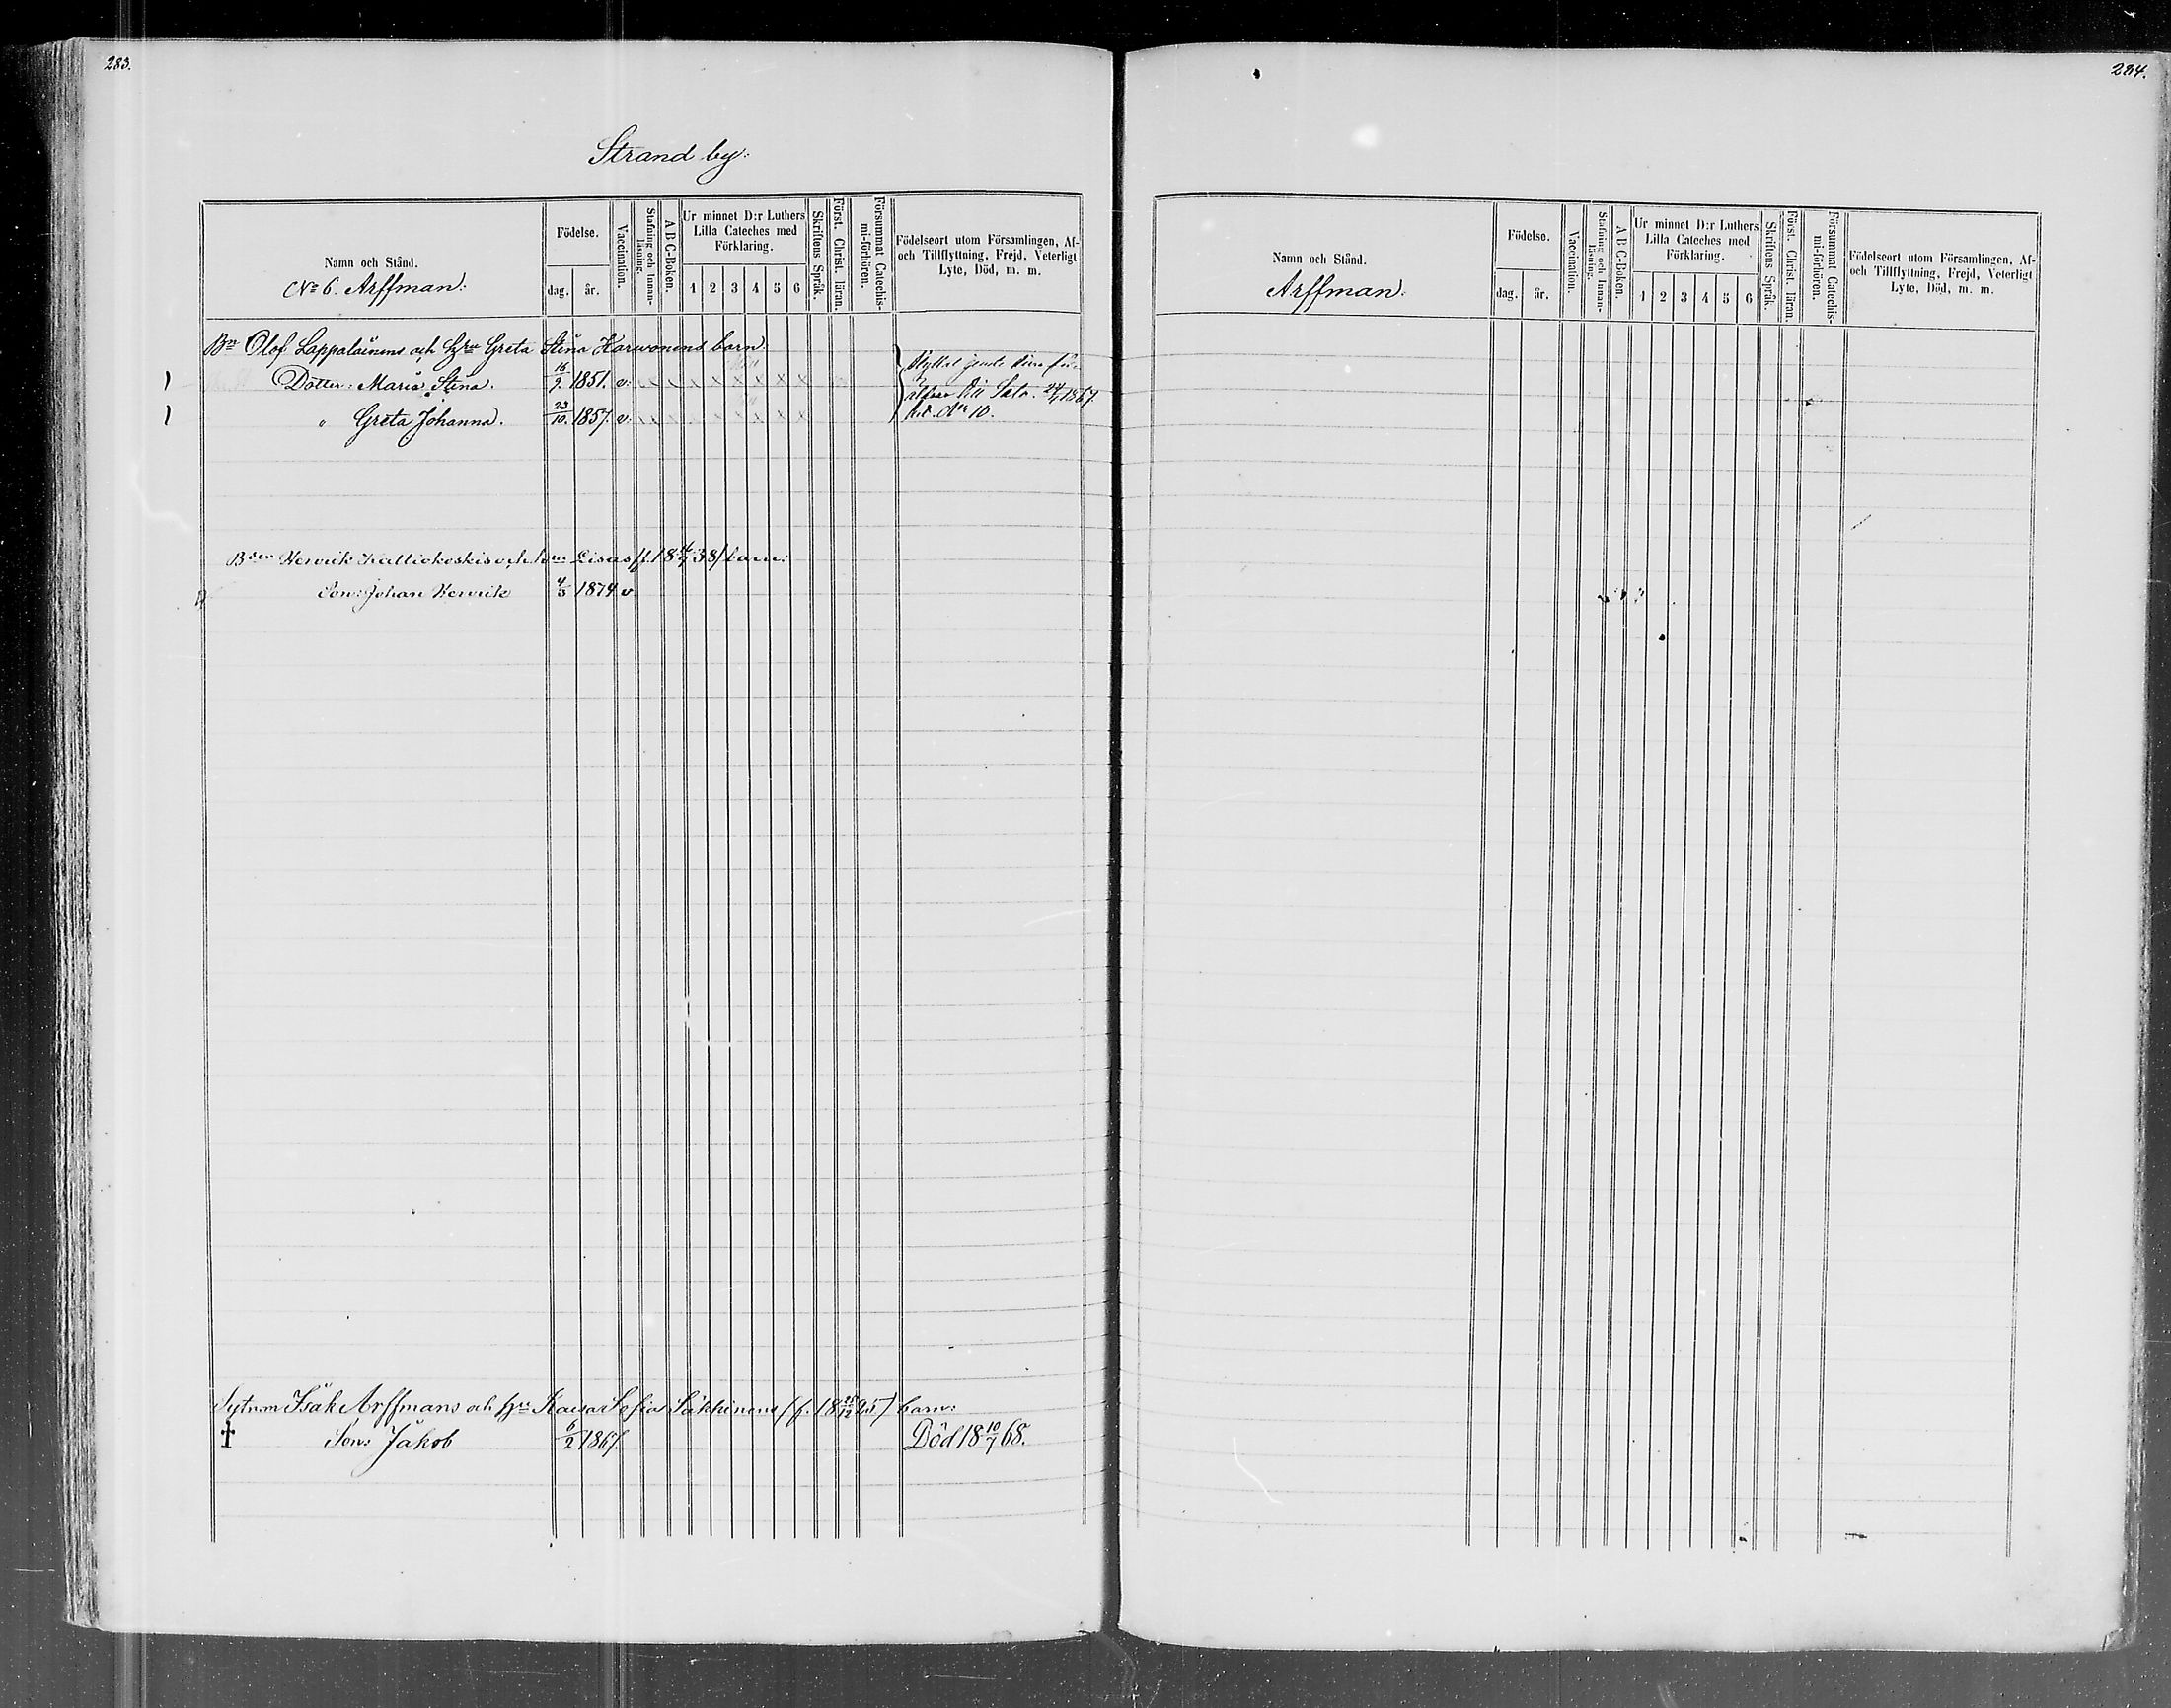 283.
Strand by:
Namn och Stånd.
No 6. Arffman:
Födelse.
dag. år.
Vaccination.
Stafning och Innanläsning.
A B C-Boken.
Ur minnet D:r Luthers
Lilla Cateches med
Förklaring.
1 2 3 4 5 6
Skriftens Språk.
Först. Christ. läran.
Försummat Catechismi-förhören.
Födelseort utom Församlingen, Af-
och Tillflyttning, Frejd, Veterligt
Lyte, Död, m. m.
Bm Olof Lappalainens och Hru Greta Stina Karwonens barn
Dotter: Maria Stina. 16/9. 1851. v.
" Greta Johanna. 23/10. 1857. v.
24/7 1867
No 10.
Henrik Kalliokoskis och Lisas f. 18 38 barn:
Son: Johan Henrik 4/3 1874 v
Isak Arffmans och Hru Kaisa Sofia Säkkinens (f. 18 25) barn:
† Son: Jakob 6/2 1867. Död 18 10/7 68.
284.
Namn och Stånd.
Arffman:
Födelse.
dag. år.
Vaccination.
Stafning och Innanläsning.
A B C-Boken.
Ur minnet D:r Luthers
Lilla Cateches med
Förklaring.
1 2 3 4 5 6
Skriftens Språk.
Först. Christ. läran.
Försummat Catechismi-förhören.
Födelseort utom Församlingen, Af-
och Tillflyttning, Frejd, Veterligt
Lyte, Död, m. m.